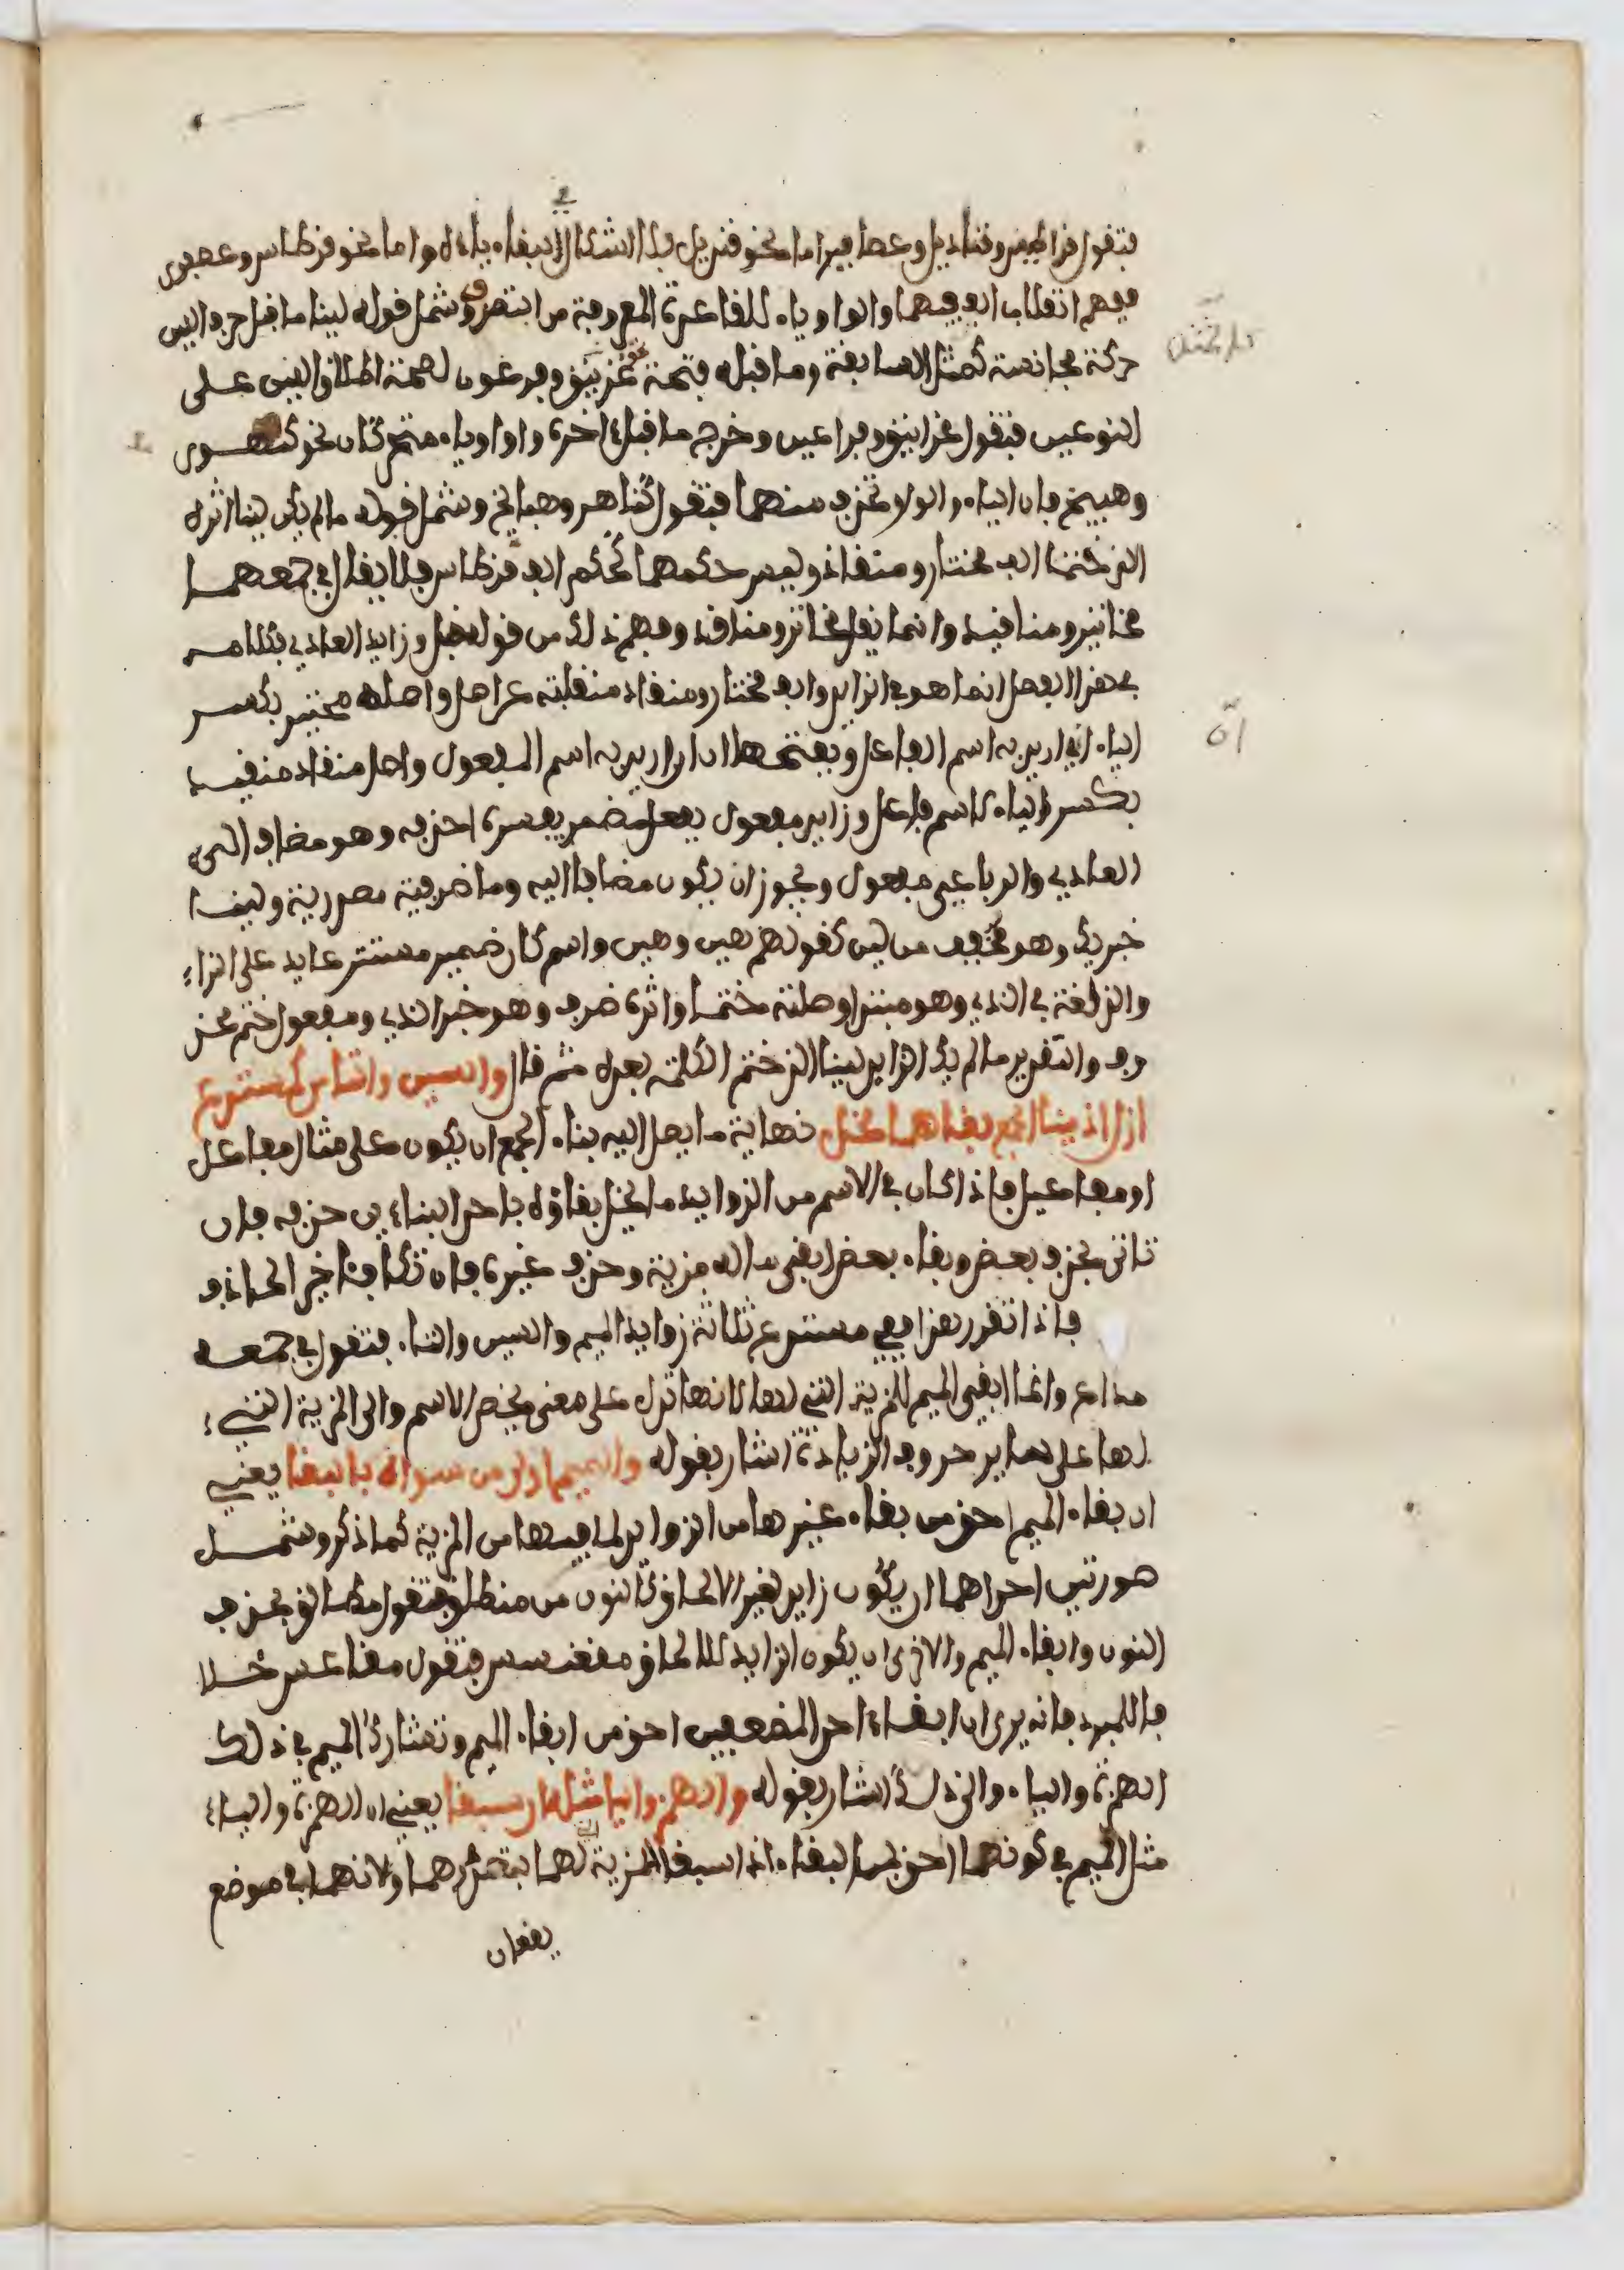 فتقول قراطيس وقناديل وعصافير اما نحو قنديل فلا اشكال في ابقاء يائه واما نحو قرطاس وعصفور
ففهم انقلاب الفيهما والواو ياء للقاعدة المعروفة من التصريف وشمل قوله لينا ما قبل حرف اللين
حركة مجانسة كالمثل السابقة وما قبله فتحة نحو غرنيق وفرعون لصحة اطلاق اللين على
النوعين فتقول غرانيق وفراعين وخرج ما قبل اخره واو او ياء متحركان نحو كنهور
وهبيخ فان الياء والواو تحذف منهما فتقول كناهر وهبايخ وشمل قوله ما لم يك لينا اثره
اللذ ختما الف مختار ومنقاد وليس حكمهما كحكم الف قرطاس فلا يقال في جمعهما
مخاتير ومناقيد وانما يقال مخاتر ومناقد وفهم ذلك من قوله قبل وزايد العادي فكلامه
في هذا الفصل انما هو في الزايد والف مختار ومنقاد منقلبة عن اصل واصله مختير بكسر
الياء ان اريد به اسم الفاعل وبفتحها ان اريد به اسم المفعول واصل منقاد منقيد
بكسر الياء كاسم فاعل وزايد مفعول بفعل مضمر يفسره احذفه وهو مضاف الى
العادي والرباعي مفعول ويجوز ان يكون مضافا اليه وما ظرفية مصدرية ولينا
خبر يك وهو مخفف من لين كقولهم هين وهين واسم كان ضمير مستتر عايد على الزايد
واللذ لغة في الذي وهو مبتدا وصلته ختما واثره ظرف وهو خبر الذي ومفعول ختم محذ
وف والتقدير ما لم يك الزايد لينا اللذ ختم الكلمة بعده ثم قال والسين والتا من كمستدع
ازل اذ ببنا الجمع بقاهما مخل نهاية ما يصل اليه بناء الجمع ان يكون على مثال مفاعل
او مفاعيل فاذا كان في الاسم من الزوايد ما يخل بقاؤه باحد البناءين حذف فان
تاتى بحذف بعض وبقاء بعض ابقي ما له مزية وحذف غيره فان تكافئا خير الحاذف
فاذا تقرر هذا ففي مستدع ثلاثة زوايد الميم والسين والتاء فتقول في جمعه
مداع وانما ابقي الميم للمزية التي لها لانها تدل على معنى يخص الاسم والى المزية التي
لها على ساير حروف الزيادة اشار بقوله والميم اولى من سواه بالبقا يعني
ان بقاء الميم احق من بقاء غيرها من الزوايد لما فيها من المزية كما ذكر وشمل
صورتين احداهما ان يكون زايد لغير الالحاق كالنون من منطلق فتقول مطالق بحذف
النون وابقاء الميم والاخرى ان يكون الزايد للالحاق مقعنسس فتقول مقاعس خلا
فا للمبرد فانه يرى ان ابقاء احد المضعفين احق من ابقاء الميم وتشارك الميم في ذلك
الهمزة والياء والى ذلك اشار بقوله والهمز واليا مثله ان سبقا يعني ان الهمزة والياء
مثل الميم في كونهما احق بالبقاء اذا سبقا لمزية لهما بتصدرهما ولانهما في موضع
يقعان